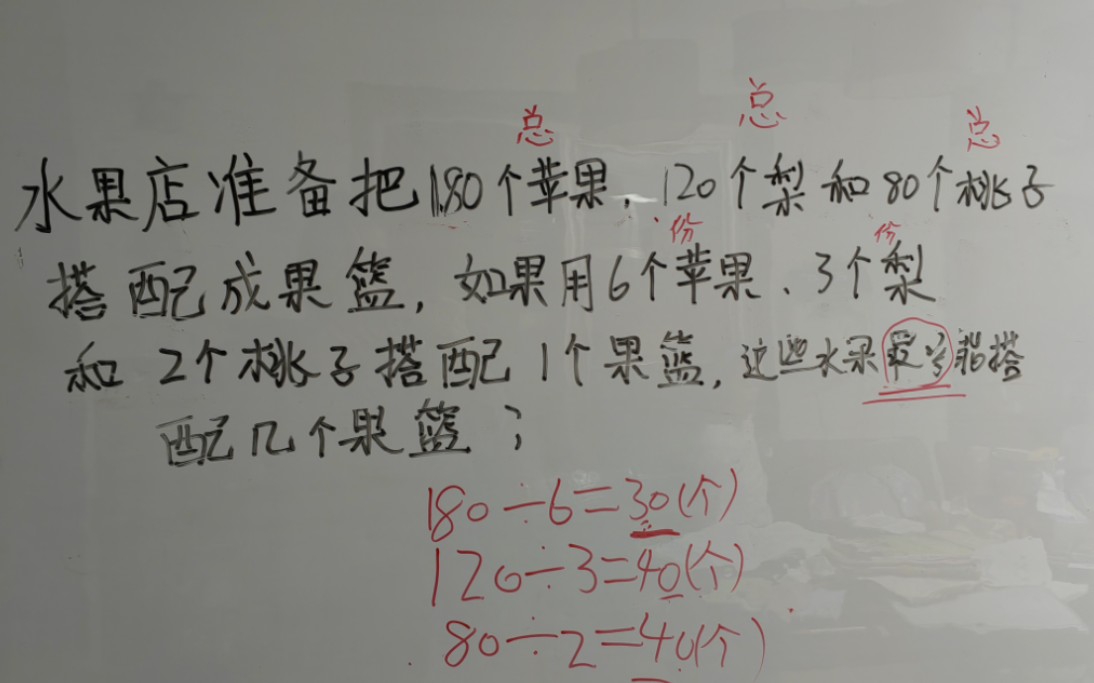 总 总 总
水果店准备把180个苹果、120个梨和80个桃子
份 份
搭配成果篮,如果用6个苹果、3个梨
和2个桃子搭配1个果篮,这些水果最多能搭
配几个果篮?
180÷6=30(个)
120÷3=40(个)
80÷2=40(个)